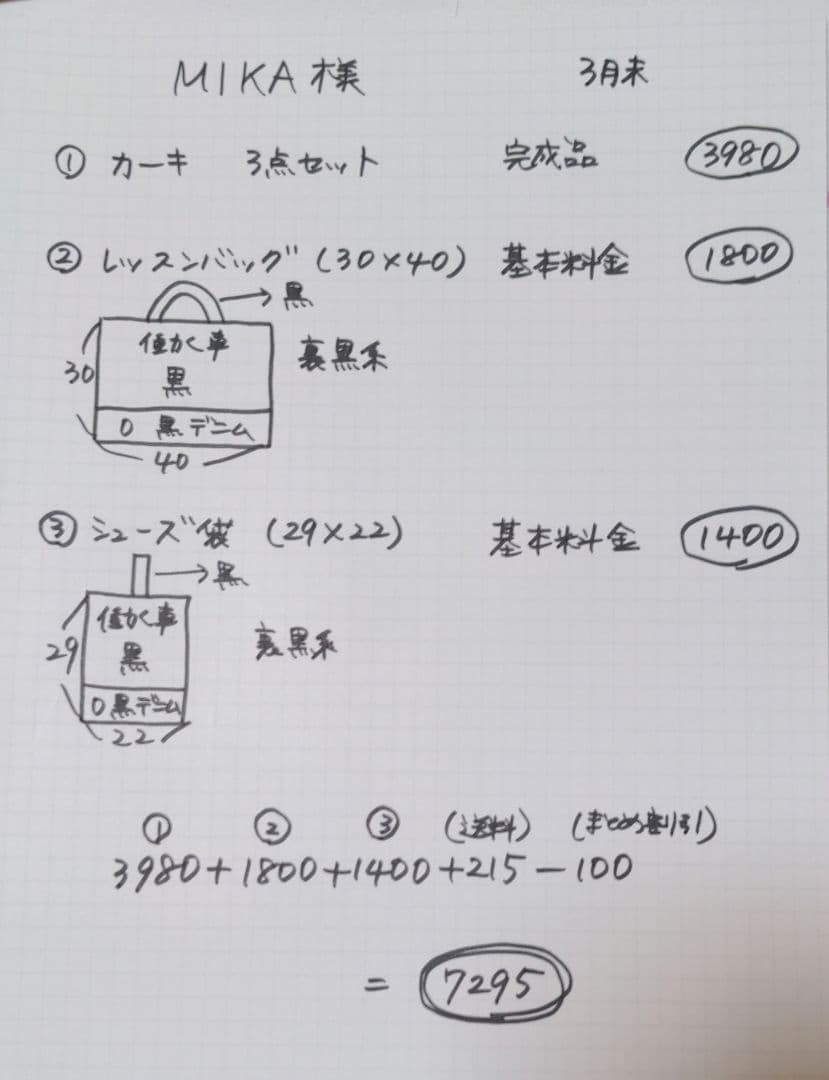 MIKA様 3月末
① カーキ 3点セット 完成品 3980
② レッスンバッグ (30×40) 基本料金 1800
→黒
働く車
黒
裏黒系
30
0 黒デニム
40
③ シューズ袋 (29×22) 基本料金 1400
→黒
働く車
黒
裏黒系
29
0 黒デニム
22
① ② ③ (送料) (まとめ割り引)
3980+1800+1400+215-100
= 7295